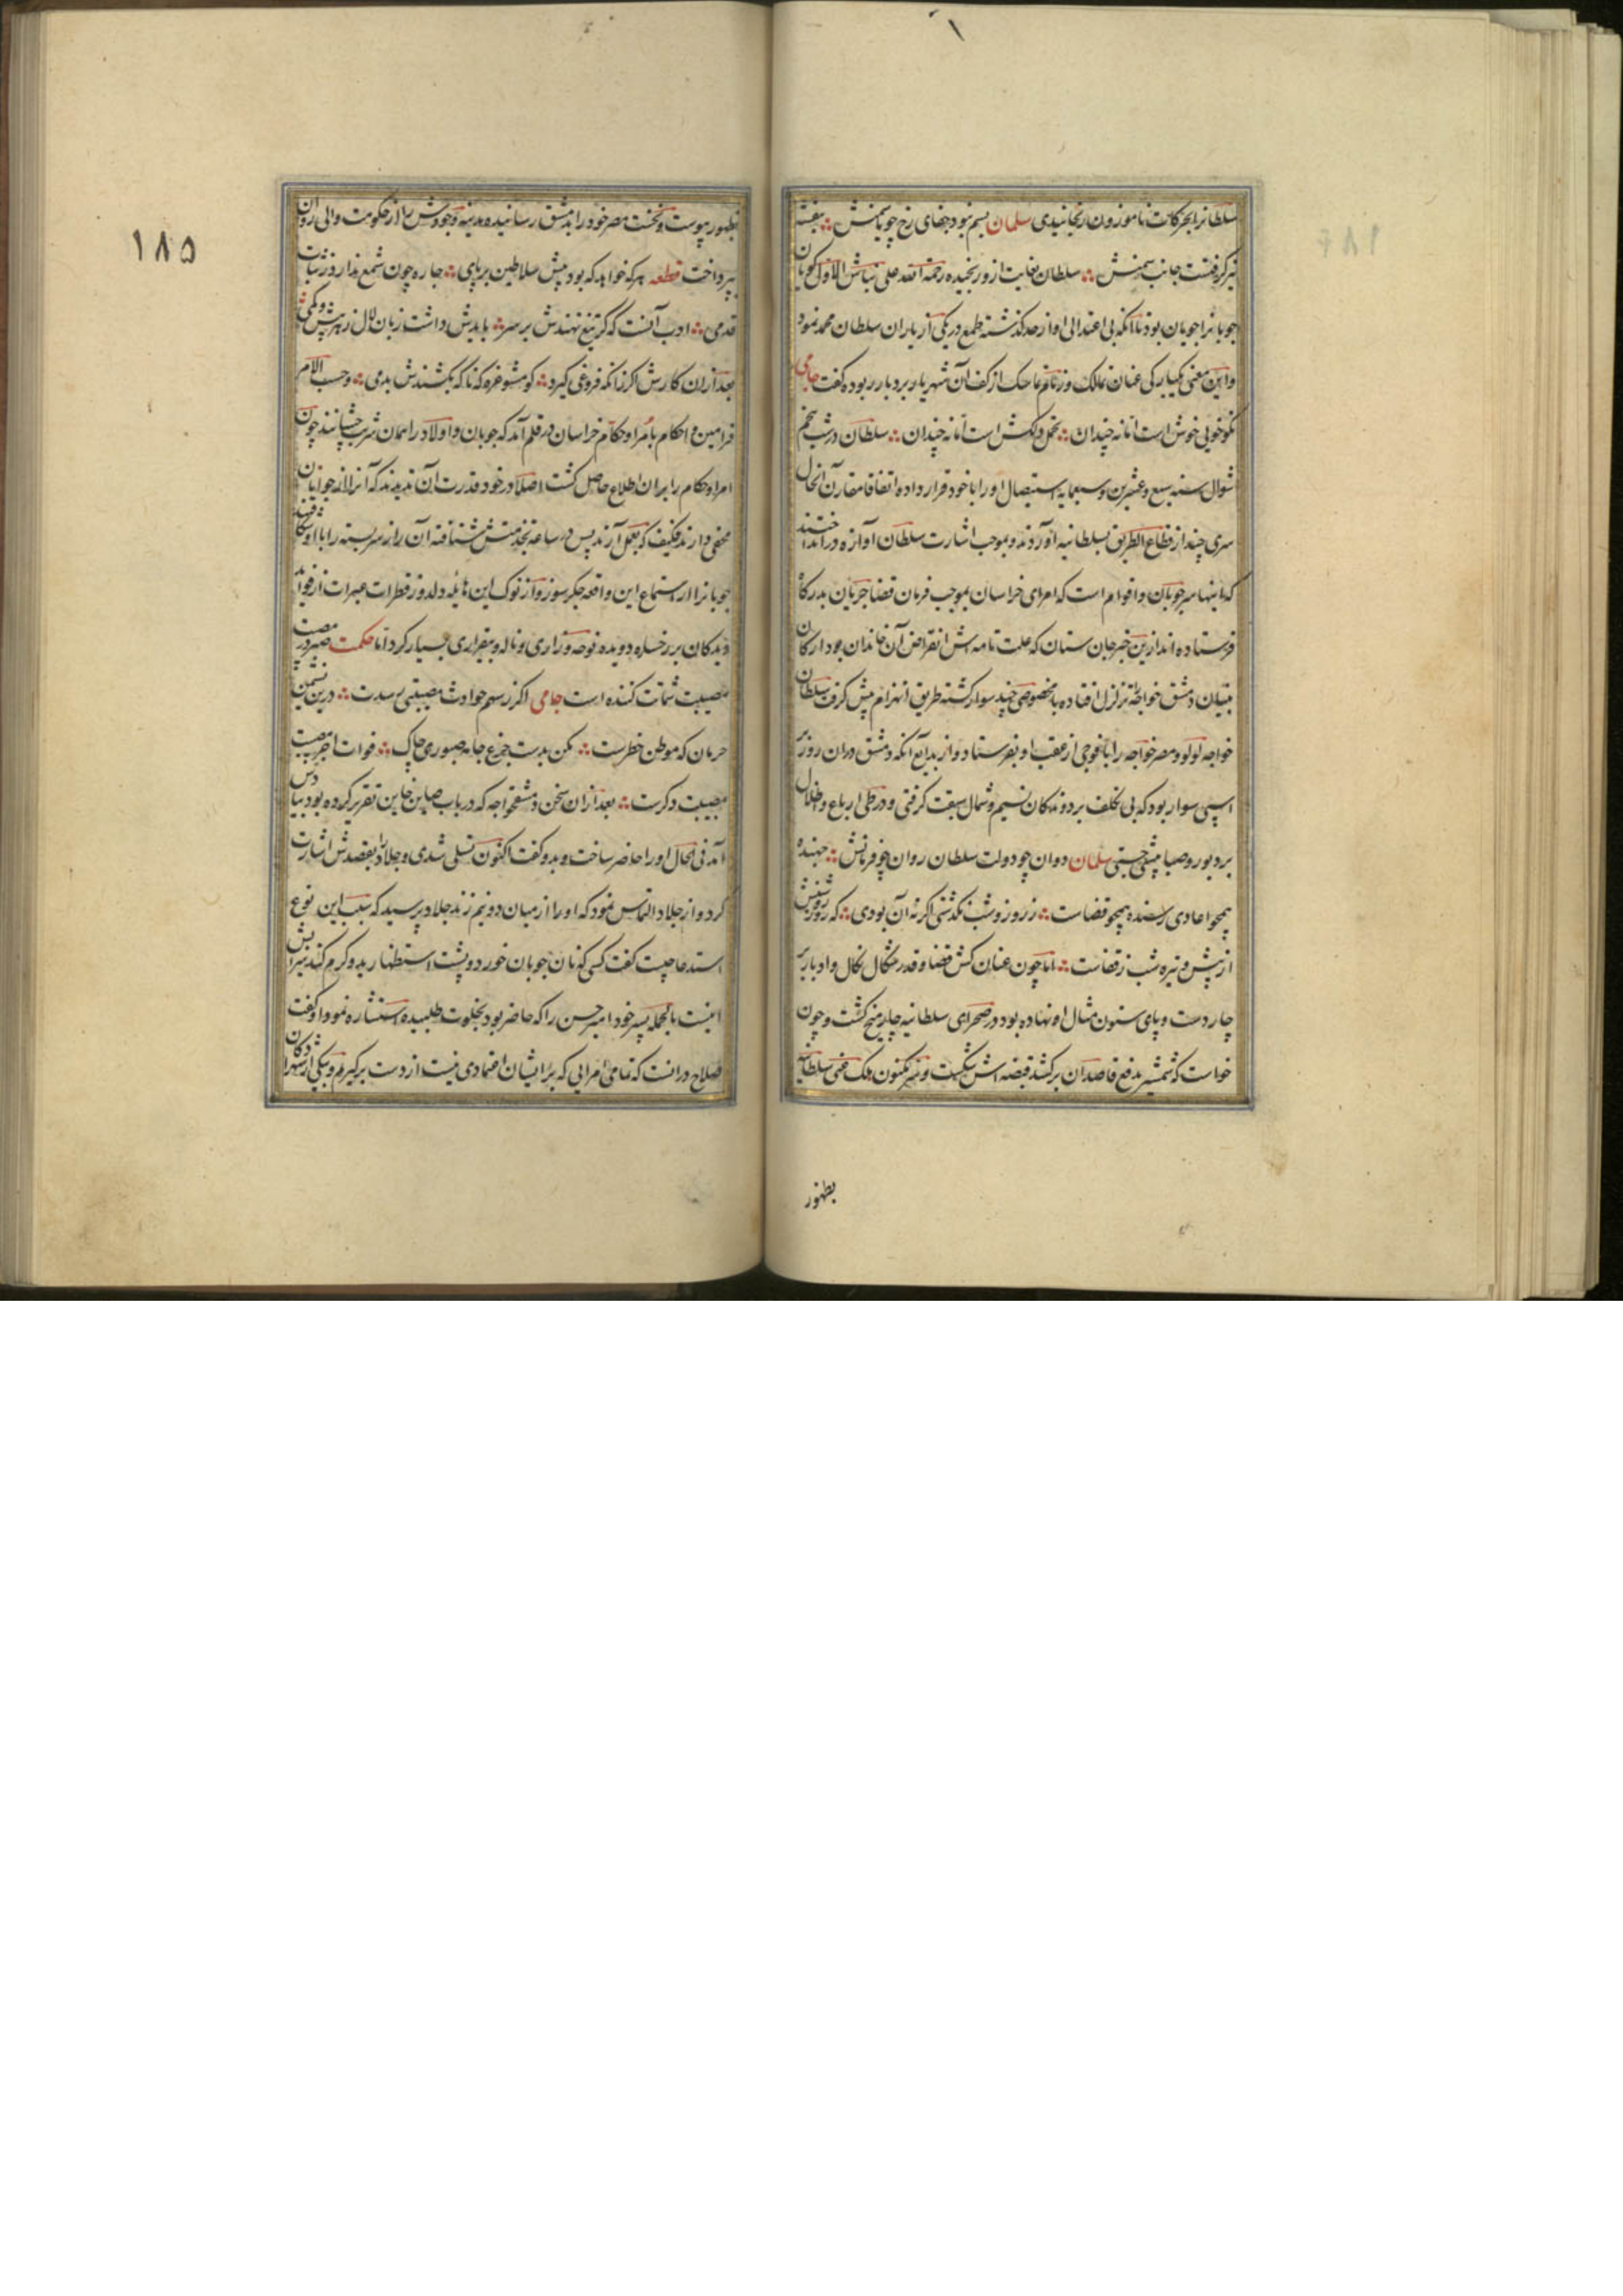 سلطانرا بحرکات ناموزون رنجانیدی سلمان بسم نبود جفای رخ چو یاسمنش بنفشه
نیز گرفتست جانب سمنش سلطان بغایت ازو رنجیده رحمة الله علی نباش الاول گویان
جوبانرا جویان بود تا آنکه بی اعتدالی او از حد گذشته طمع در یکی از یاران سلطان محمد نمود
و این معنی یکبارگی عنان تمالک و زمام تماسک از کف آن شهریار بردبار ربوده گفت جامی
نکوخویی خوش است اما نه چندان تحمل دلکش است اما نه چندان سلطان در شب پنجم
شوال سنه سبع و عشرین و سبعمایه استیصال او را با خود قرار داده اتفاقا مقارن آنحال
سری چند از قطاع الطریق بسلطانیه آوردند و بموجب اشارت سلطان آوازه در انداختند
که اینها سر جوبان و اقوام است که امرای خراسان بموجب فرمان قضا جریان بدرگاه
فرستاده اند ازین خبر جان ستان که علت تامه اش انقراض آن خاندان بود ارکان
بنیان دمشق خواجه تزلزل افتاده با مخصوصی چند سوار گشته طریق انهزام پیش گرفت سلطان
خواجه لولو و مصر خواجه را با فوجی از عقب او بفرستاد و از بدایع آنکه دمشق دران روز بر
اسپی سوار بود که بی تکلف بر دوندگان نسیم و شمال سبقت گرفتی و در طی ارباع و اطلال
بر دبور و صبا پیشی جستی سلمان دوان چو دولت سلطان روان چو فرمانش جهنده
همچو اعادی رسنده همچو قضاست ز روز و شب بگذشتی اگر نه آن بودی که روز روشنش
از پیش و تیره شب ز قفاست اما چون عنان کش قضا و قدر شکال نکال و ادبار بر
چار دست و پای ستون مثال او نهاده بود در صحرای سلطانیه چار میخ گشت و چون
خواست که شمشیر بدفع قاصدان برکشد قبضه اش بشکست و
بظهور
۱۸۵
بظهور پیوست و نخست مصر خود را بدمشق رسانیده مدینه وجودش را از حکومت والی روان
بپرداخت قطعه هر که خواهد که بود پیش سلاطین بر پای چاره چون شمع ندارد ز ثبات
قدمی ادب آنست که گر تیغ نهندش بر سر بایدش داشت زبان لال ز هر بیش و کمی
بعد ازان کارش اگر زانکه فروغی گیرد گو مشو غره که ناگه بکشندش بدمی و حسب الامر
فرامین و احکام بامرا و حکام خراسان در قلم آمد که جوبان و اولاد را همان شربت چشانند چون
امرا و حکام را بران اطلاع حاصل گشت اصلا در خود قدرت آن ندیدند که آنرا از جوبان
مخفی دارند فکیف که بعمل آرند پس در ساعه بخدمتش شتافته آن راز سربسته را با او شکافتند
جوبانرا از استماع این واقعه جگرسوز و از نوک این هایله دلدوز قطرات عبرات از فواره
دیدگان بر رخساره دویده نوحه و زاری و ناله و بیقراری بسیار کرد اما حکمت صبر در مصیبت
مصیبت شماتت کننده است جامی اگر ز سهم حوادث مصیبتی رسدت درین نشیمن
حرمان که موطن خطرست مکن بدست جزع جامه صبوری چاک فوات اجر مصیبت
مصیبت دگرست بعد ازان سخن دمشقخواجه که در باب صاین خاین تقریر کرده بود بیادش
آمد فی الحال او را حاضر ساخت و بدو گفت اکنون تسلی شدی و جلاد را بقصدش اشارت
کرد و از جلاد التماس نمود که او را از میان دو نیم زند جلاد پرسید که سبب این نوع
استدعا چیست گفت کسی که نان جوبان خورد و پشت استظهار بدو گرم کند سزایش
اینست بالجمله پسر خود امیر حسن را که حاضر بود بخلوت طلبیده استشاره نمود او گفت
صلاح درانست که تمامی امرایی که بر ایشان اعتمادی نیست از دست برگیرم و یکی از شهزادگان